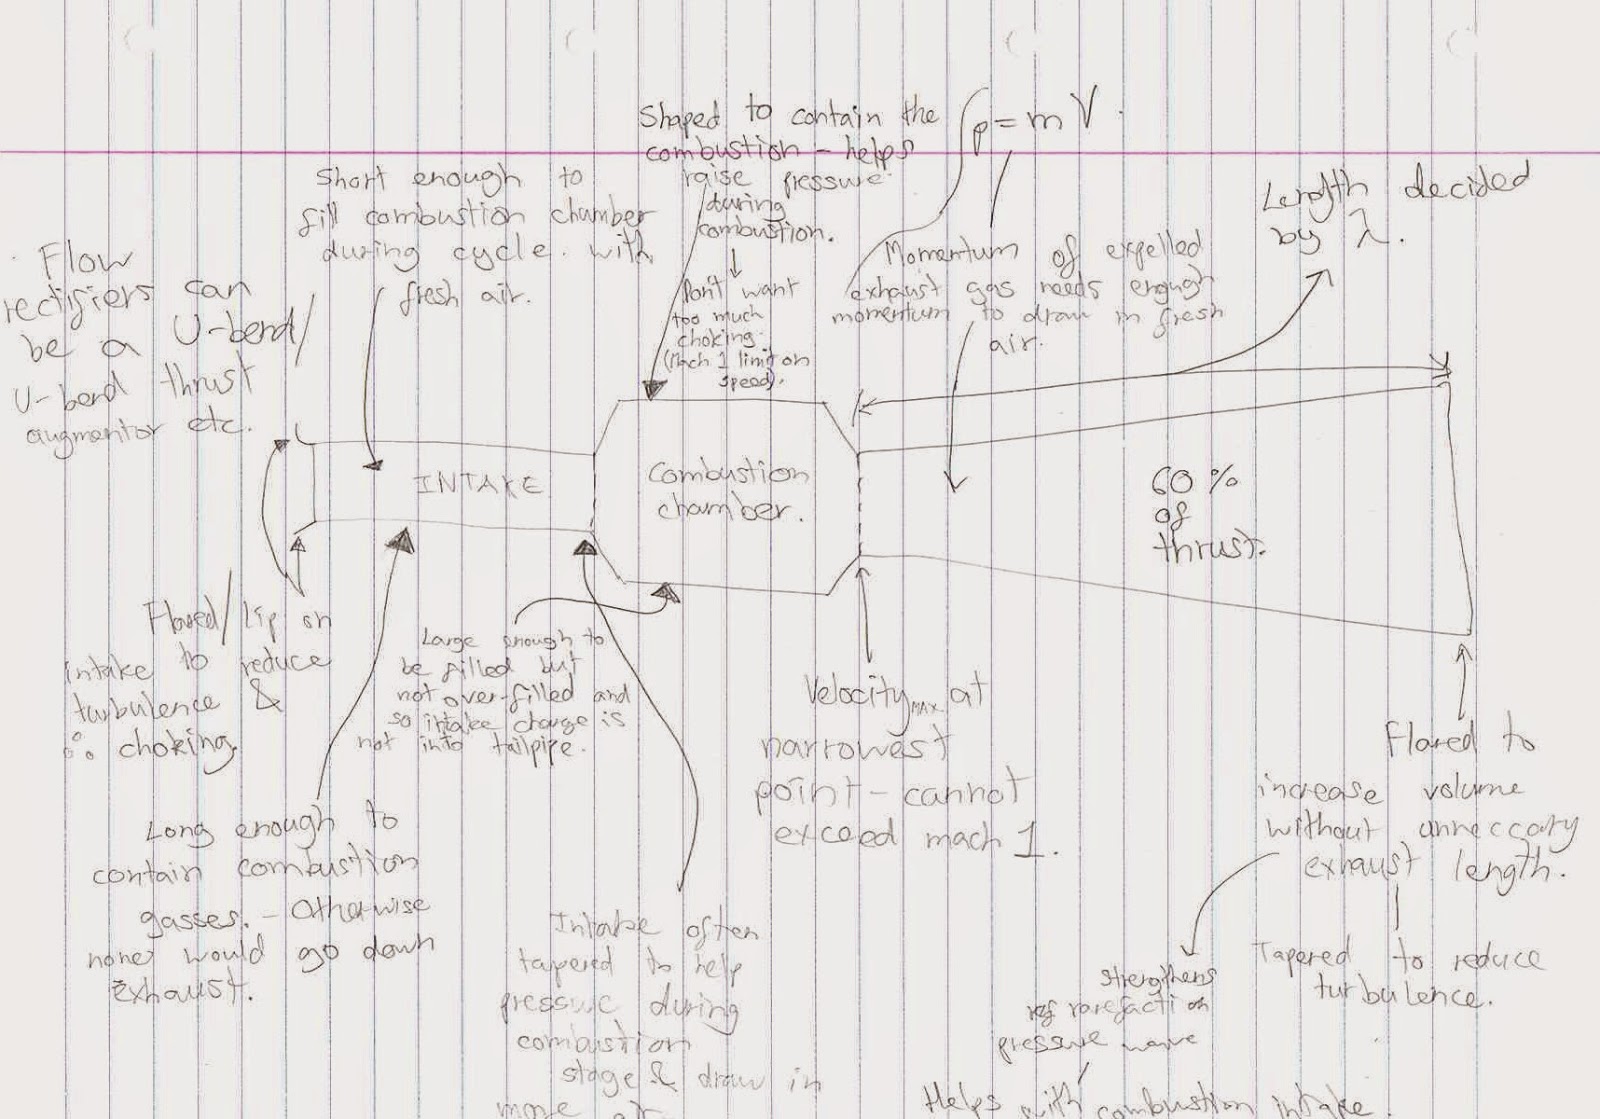 Shaped to contain the
combustion - helps
raise pressure
during
combustion.
↓
Don't want
too much
choking
(Mach 1 limit on
speed).
p = mV.
Momentum of expelled
exhaust gas needs enough
momentum to draw in fresh
air.
Length decided
by λ.
Short enough to
fill combustion chamber
during cycle. with
fresh air.
Flow
rectifiers can
be a U-bend/
U-bend thrust
augmentor etc.
INTAKE
Combustion
chamber.
60%
of
thrust.
Flared/Lip on
intake to reduce
turbulence &
∴ choking.
Large enough to
be filled but
not over-filled and
so intake charge is
not into tailpipe.
Velocity MAX at
narrowest
point - cannot
exceed mach 1.
Flared to
increase volume
without unneccary
exhaust length.
Tapered to reduce
turbulence.
strengthens
rarefaction
pressure wave
Helps with combustion intake.
Long enough to
contain combustion
gasses. - Otherwise
none would go down
exhaust.
Intake often
tapered to help
pressure during
combustion
stage & draw in
more air